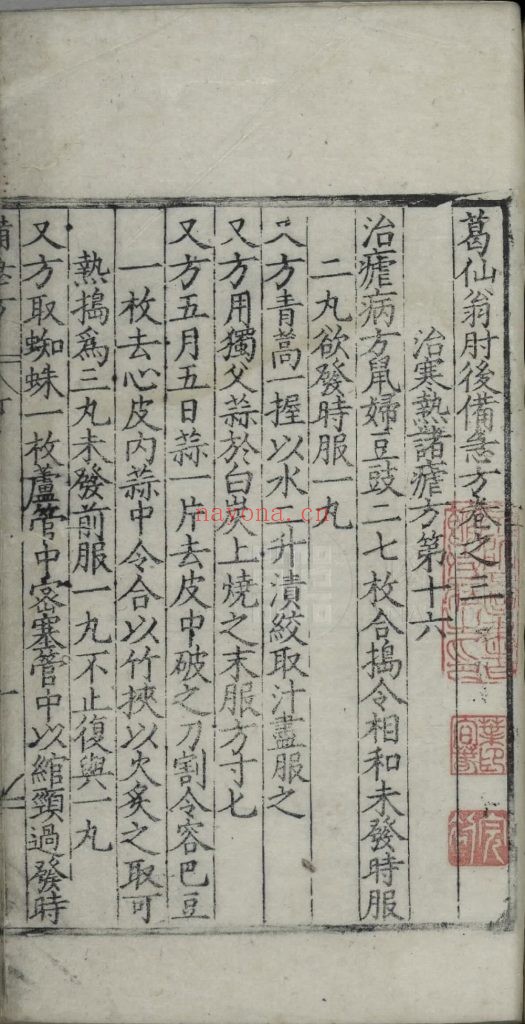 葛仙翁肘後備急方卷之三
治寒熱諸瘧方第十六
治瘧病方鼠婦豆豉二七枚合搗令相和未發時服
二丸欲發時服一丸
又方青蒿一握以水一升漬絞取汁盡服之
又方用獨父蒜於白炭上燒之末服方寸七
又方五月五日蒜一片去皮中破之刀割令容巴豆
一枚去心皮內蒜中令合以竹挾以火炙之取可
熱搗爲三丸未發前服一丸不止復與一丸
又方取蜘蛛一枚蘆管中密塞管中以綰頸過發時
nayona.cn